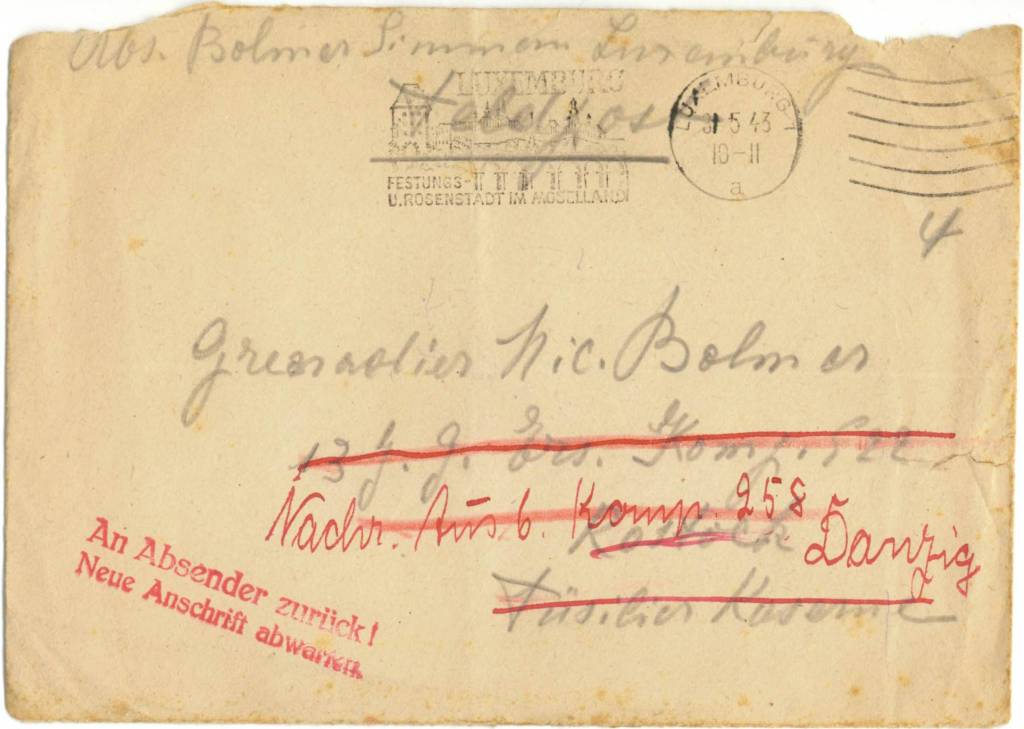 Abs. Bolmer Simmern Luxemburg
LUXEMBURG
Feldpost
FESTUNGS-
U. ROSENSTADT IM MOSELLAND
LUXEMBURG 1
5 43
10-11
a
4
Grenadier Nic. Bolmer
13 J. G. Ers. Komp. 522
Nachr. Ausb. Komp. 258 Danzig
Rostock
Füsilier Kaserne
An Absender zurück!
Neue Anschrift abwarten.